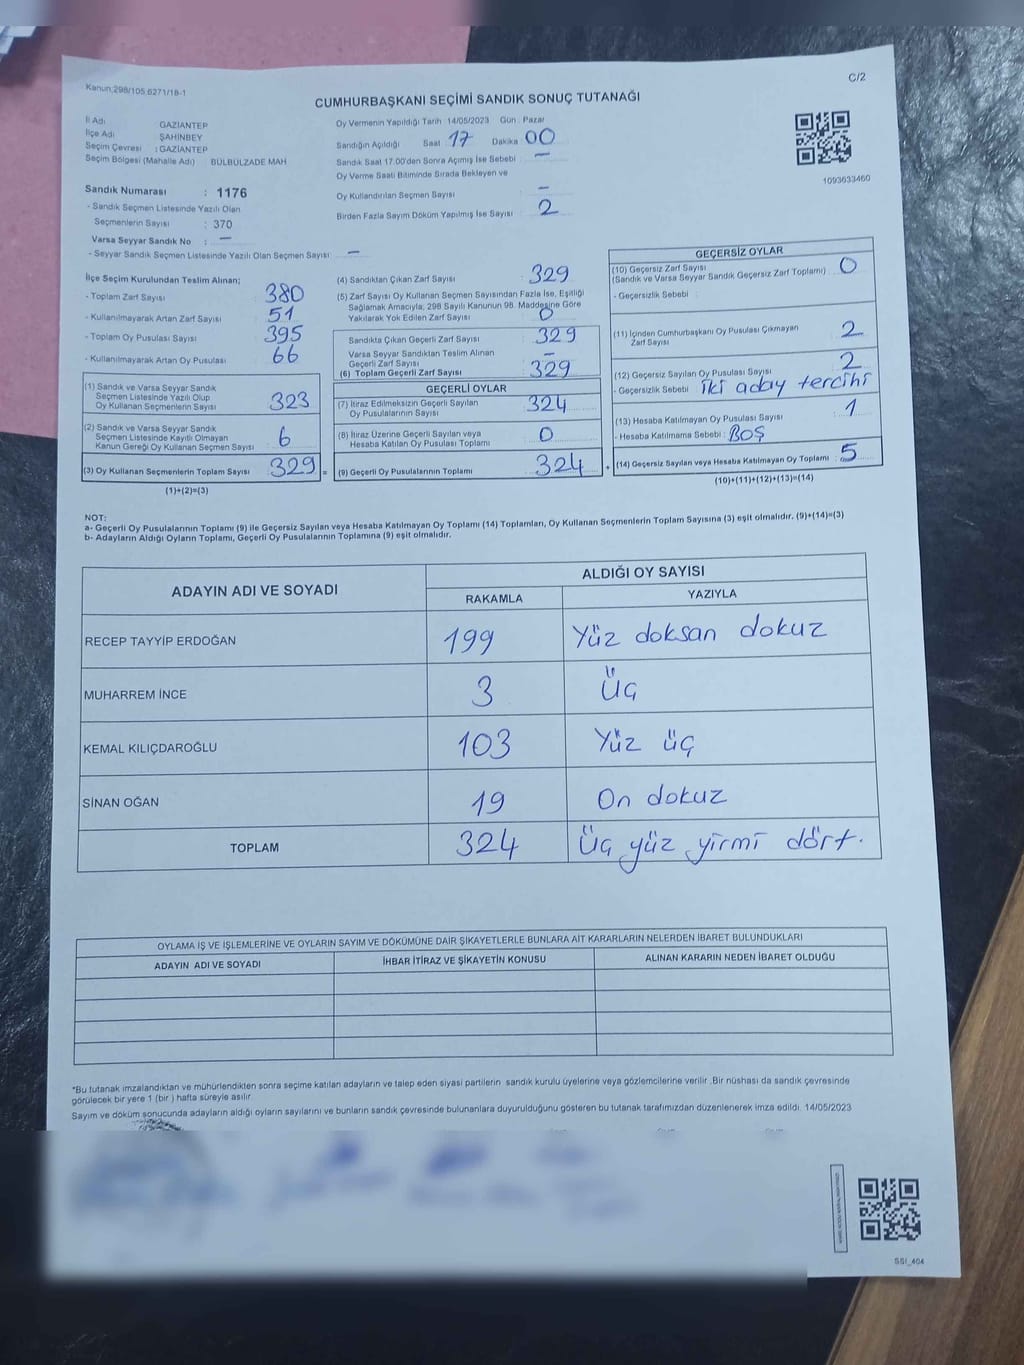 Kanun:298/105,6271/18-1
C/2
CUMHURBAŞKANI SEÇİMİ SANDIK SONUÇ TUTANAĞI
İl Adı GAZİANTEP
İlçe Adı ŞAHİNBEY
Seçim Çevresi : GAZİANTEP
Seçim Bölgesi (Mahalle Adı) BÜLBÜLZADE MAH
Sandık Numarası : 1176
- Sandık Seçmen Listesinde Yazılı Olan
Seçmenlerin Sayısı : 370
Varsa Seyyar Sandık No : —
- Seyyar Sandık Seçmen Listesinde Yazılı Olan Seçmen Sayısı: —
Oy Vermenin Yapıldığı Tarih 14/05/2023 Gün : Pazar
Sandığın Açıldığı Saat 17 Dakika 00
Sandık Saat 17.00'den Sonra Açımış İse Sebebi : —
Oy Verme Saati Bitiminde Sırada Bekleyen ve
Oy Kullandırılan Seçmen Sayısı : —
Birden Fazla Sayım Döküm Yapılmış İse Sayısı : 2
1093633460
İlçe Seçim Kurulundan Teslim Alınan;
- Toplam Zarf Sayısı : 380
- Kullanılmayarak Artan Zarf Sayısı : 51
- Toplam Oy Pusulası Sayısı : 395
- Kullanılmayarak Artan Oy Pusulası : 66
(1) Sandık ve Varsa Seyyar Sandık
Seçmen Listesinde Yazılı Olup
Oy Kullanan Seçmenlerin Sayısı : 323
(2) Sandık ve Varsa Seyyar Sandık
Seçmen Listesinde Kayıtlı Olmayan
Kanun Gereği Oy Kullanan Seçmen Sayısı : 6
(3) Oy Kullanan Seçmenlerin Toplam Sayısı : 329 =
(1)+(2)=(3)
(4) Sandıktan Çıkan Zarf Sayısı : 329
(5) Zarf Sayısı Oy Kullanan Seçmen Sayısından Fazla İse, Eşitliği
Sağlamak Amacıyla, 298 Sayılı Kanunun 98. Maddesine Göre
Yakılarak Yok Edilen Zarf Sayısı : 0
Sandıkta Çıkan Geçerli Zarf Sayısı : 329
Varsa Seyyar Sandıktan Teslim Alınan
Geçerli Zarf Sayısı : —
(6) Toplam Geçerli Zarf Sayısı : 329
GEÇERLİ OYLAR
(7) İtiraz Edilmeksizin Geçerli Sayılan
Oy Pusulalarının Sayısı : 324
(8) İtiraz Üzerine Geçerli Sayılan veya
Hesaba Katılan Oy Pusulası Toplamı : 0
(9) Geçerli Oy Pusulalarının Toplamı : 324 +
GEÇERSİZ OYLAR
(10) Geçersiz Zarf Sayısı
(Sandık ve Varsa Seyyar Sandık Geçersiz Zarf Toplamı) : 0
- Geçersizlik Sebebi :
(11) İçinden Cumhurbaşkanı Oy Pusulası Çıkmayan
Zarf Sayısı : 2
(12) Geçersiz Sayılan Oy Pusulası Sayısı : 2
- Geçersizlik Sebebi : İki aday tercihi
(13) Hesaba Katılmayan Oy Pusulası Sayısı : 1
- Hesaba Katılmama Sebebi : BOŞ
(14) Geçersiz Sayılan veya Hesaba Katılmayan Oy Toplamı : 5
(10)+(11)+(12)+(13)=(14)
NOT:
a- Geçerli Oy Pusulalarının Toplamı (9) ile Geçersiz Sayılan veya Hesaba Katılmayan Oy Toplamı (14) Toplamları, Oy Kullanan Seçmenlerin Toplam Sayısına (3) eşit olmalıdır. (9)+(14)=(3)
b- Adayların Aldığı Oyların Toplamı, Geçerli Oy Pusulalarının Toplamına (9) eşit olmalıdır.
ADAYIN ADI VE SOYADI ALDIĞI OY SAYISI
RAKAMLA YAZIYLA
RECEP TAYYİP ERDOĞAN 199 Yüz doksan dokuz
MUHARREM İNCE 3 Üç
KEMAL KILIÇDAROĞLU 103 Yüz üç
SİNAN OĞAN 19 On dokuz
TOPLAM 324 Üç yüz yirmi dört.
OYLAMA İŞ VE İŞLEMLERİNE VE OYLARIN SAYIM VE DÖKÜMÜNE DAİR ŞİKAYETLERLE BUNLARA AİT KARARLARIN NELERDEN İBARET BULUNDUKLARI
ADAYIN ADI VE SOYADI İHBAR İTİRAZ VE ŞİKAYETİN KONUSU ALINAN KARARIN NEDEN İBARET OLDUĞU
*Bu tutanak imzalandıktan ve mühürlendikten sonra seçime katılan adayların ve talep eden siyasi partilerin sandık kurulu üyelerine veya gözlemcilerine verilir .Bir nüshası da sandık çevresinde
görülecek bir yere 1 (bir ) hafta süreyle asılır.
Sayım ve döküm sonucunda adayların aldığı oyların sayılarını ve bunların sandık çevresinde bulunanlara duyurulduğunu gösteren bu tutanak tarafımızdan düzenlenerek imza edildi. 14/05/2023
SSI_404